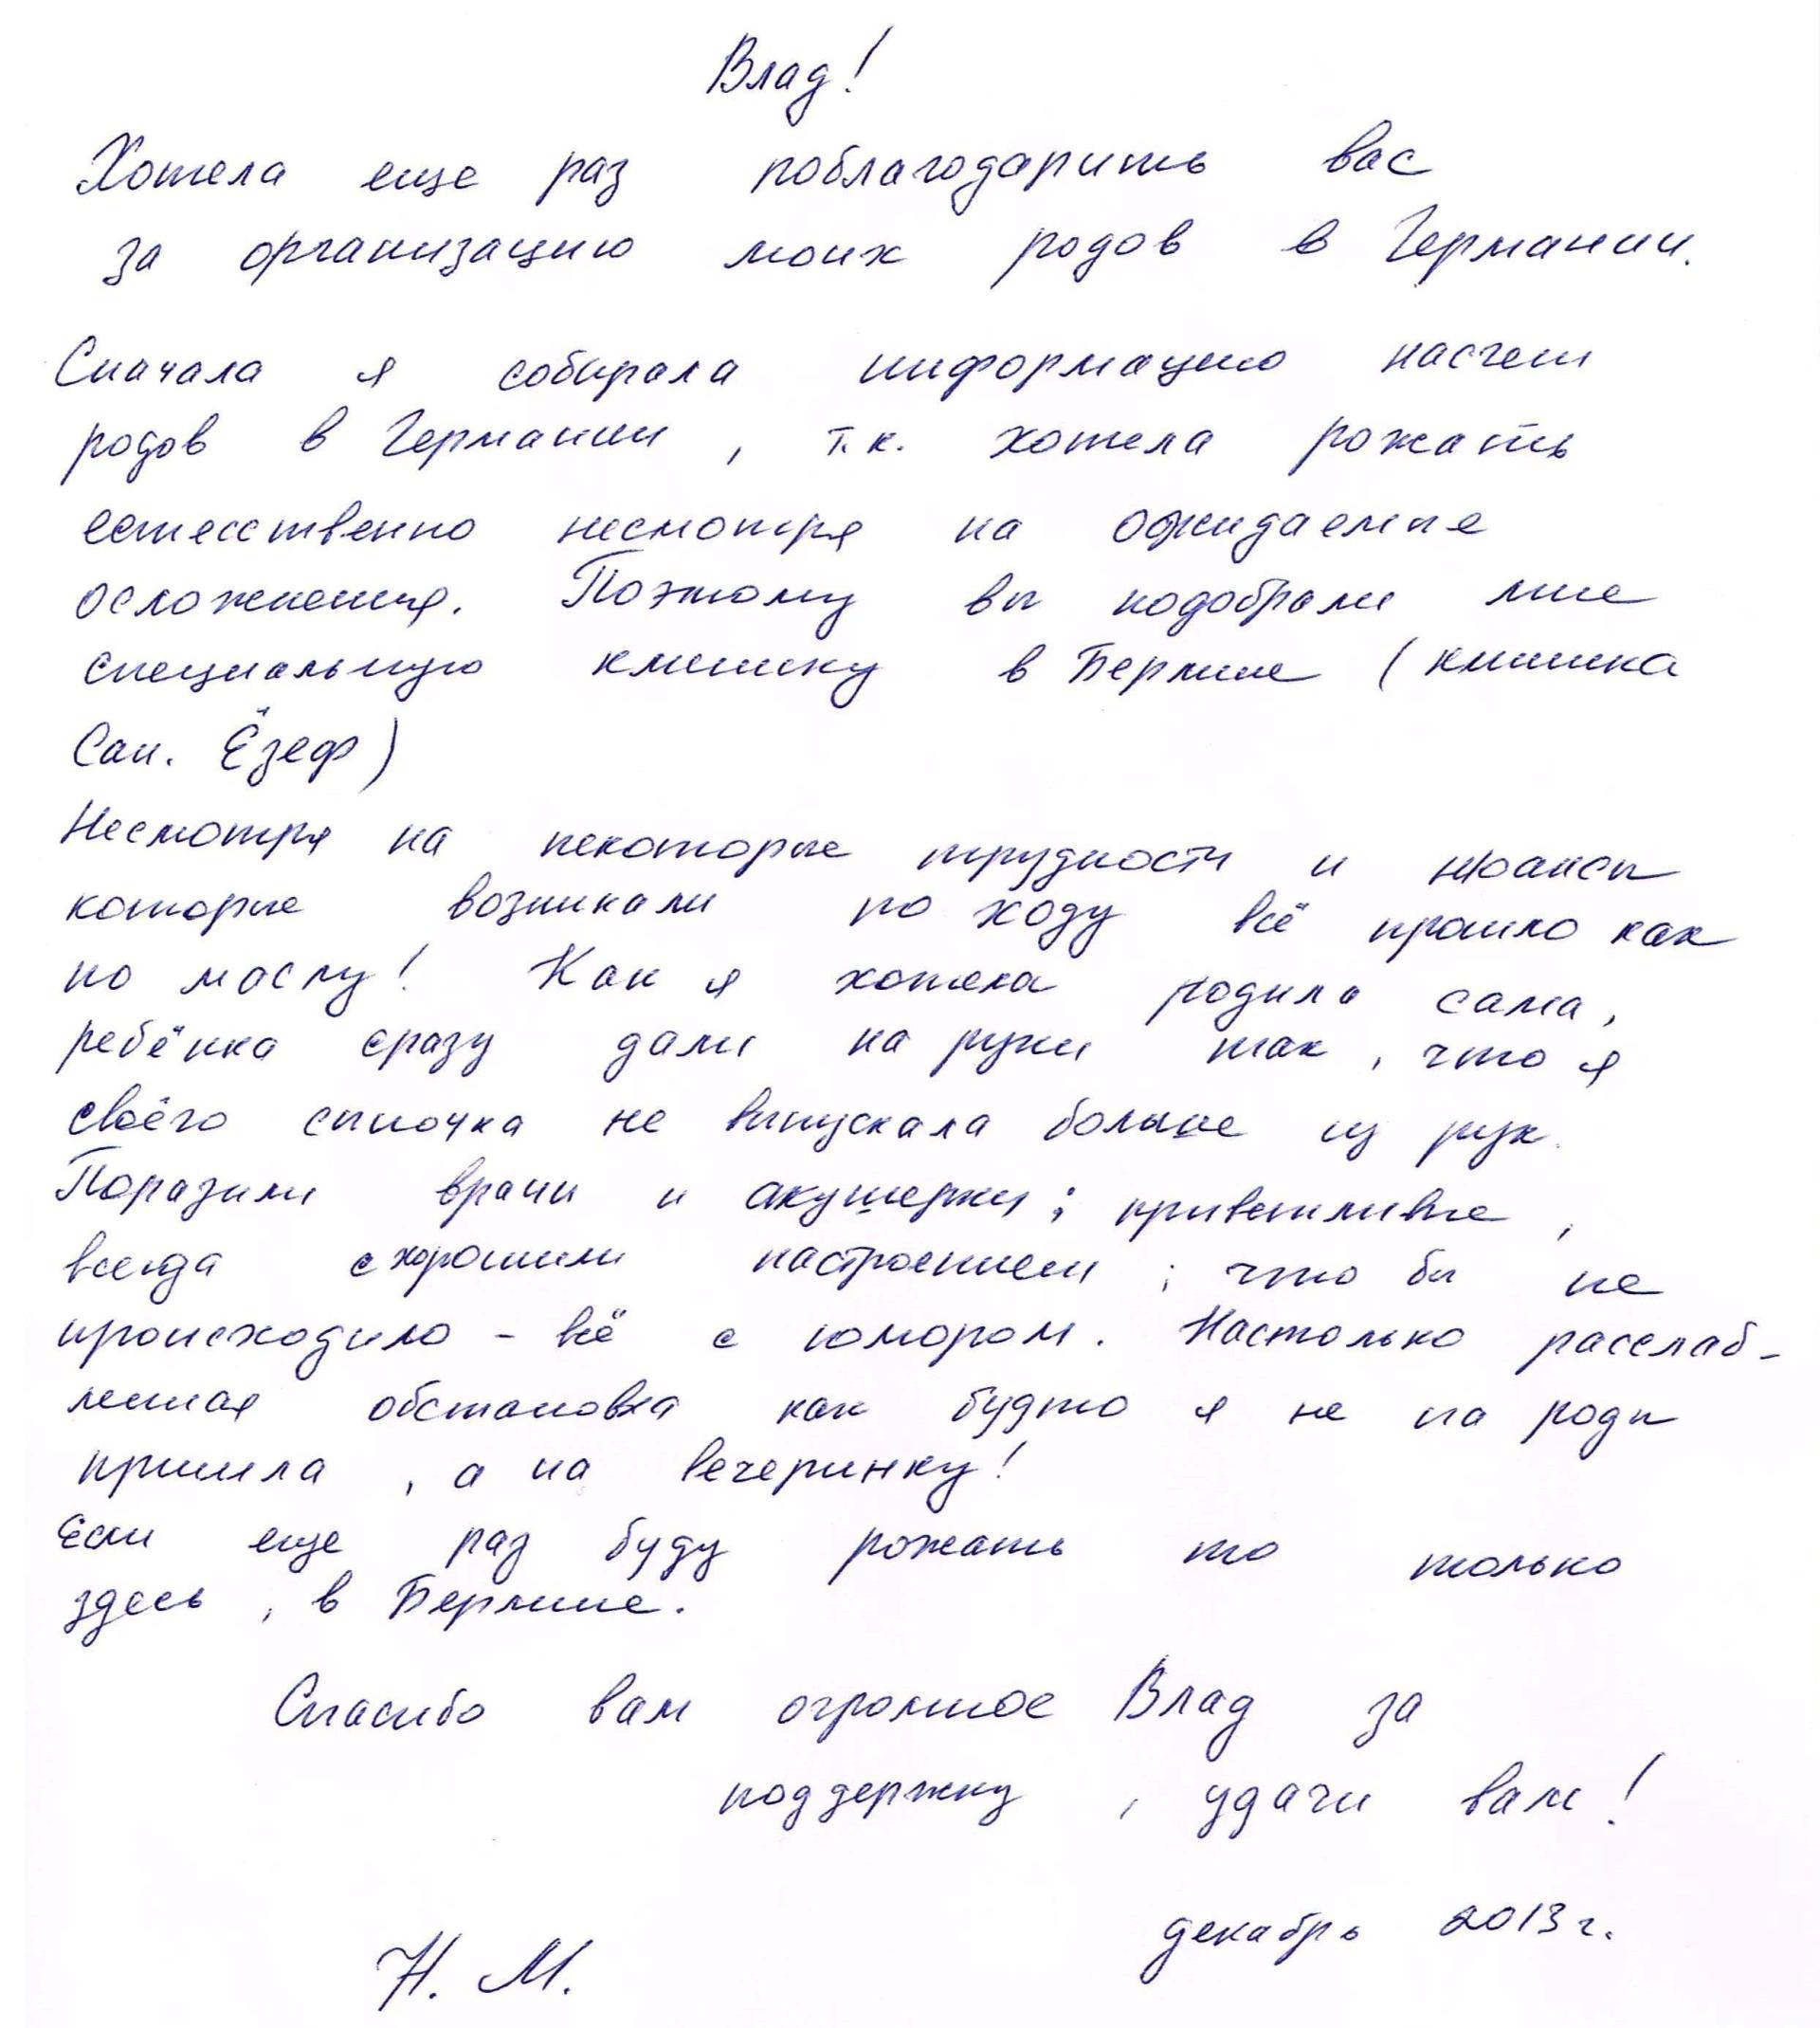 Влад!
Хотела еще раз поблагодарить вас
за организацию моих родов в Германии.
Сначала я собирала информацию насчет
родов в Германии, т.к. хотела рожать
естесственно несмотря на ожидаемые
осложнения. Поэтому вы подобрали мне
специальную клинику в Берлине (клиника
Сан. Ёзеф)
Несмотря на некоторые трудности и нюансы
которые возникали по ходу всё прошло как
по маслу! Как я хотела родила сама,
ребёнка сразу дали на руки так, что я
своего сыночка не выпускала больше из рук.
Поразили врачи и акушерки; приветливые,
всегда с хорошим настроением; что бы не
происходило - всё с юмором. Настолько расслаб-
ленная обстановка как будто я не на роды
пришла, а на вечеринку!
Если еще раз буду рожать то только
здесь, в Берлине.
Спасибо вам огромное Влад за
поддержку, удачи вам!
декабрь 2013 г.
Н. М.